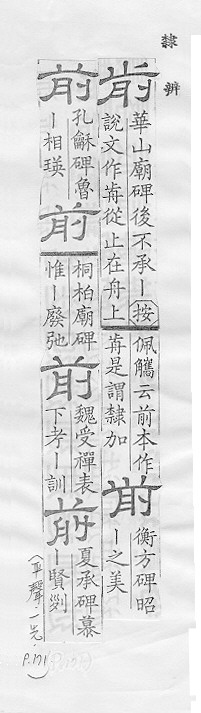 隸辨
歬 華山廟碑後不承｜按佩觿云前本作 前 衡方碑昭
說文作歬從止在舟上歬是謂隸加 ｜之美
前 孔龢碑魯 前 桐柏廟碑 前 魏受禪表 前 夏承碑慕
｜相瑛 惟｜廢弛 下孝｜訓 ｜賢剡
(平聲·一先·
P.171)